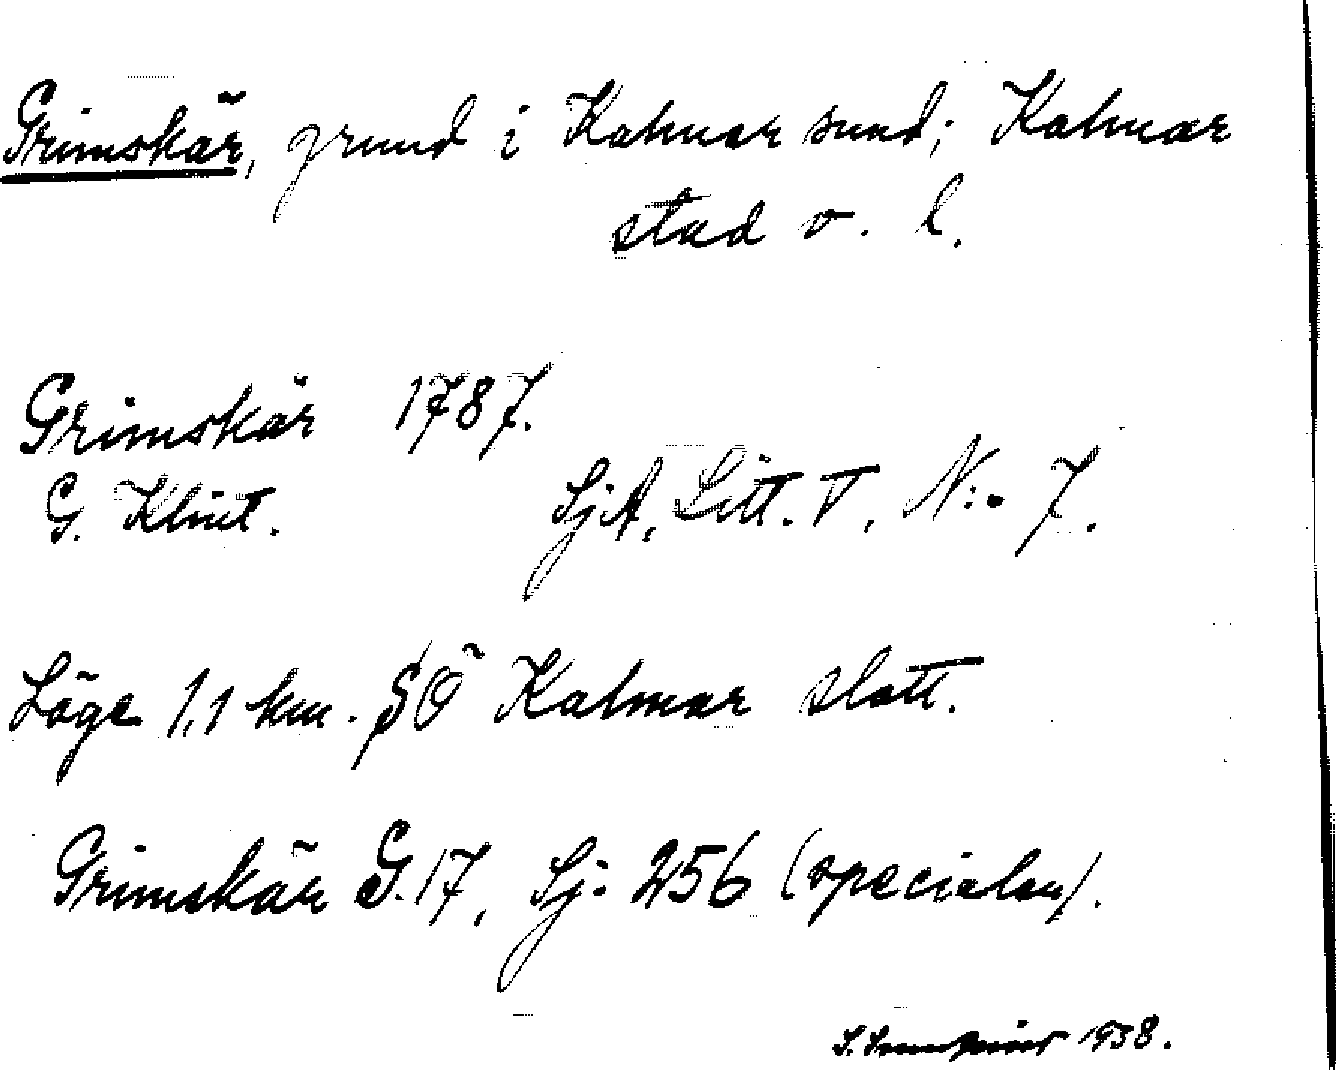 Grimskär, grund i Kalmar sund; Kalmar
stad o. l.
Grimskär 1787.
G. Klint. SjA, Litt. V, N:o 7.
Läge 1,1 km. SÖ Kalmar slott.
Grimskär G. 17, Sj: 256 (specialen).
1938.